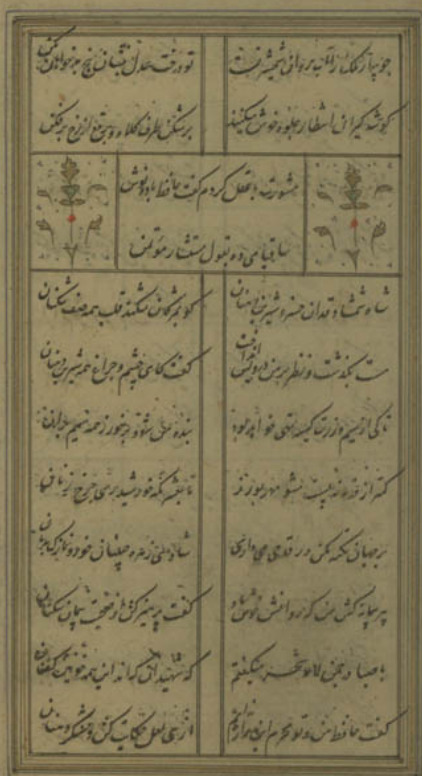 جویبار ملک را آب روان شمشیر تست تو درخت عدل بنشان بیخ بدخواهان بکن
گوشه گیران انتظار جلوه خوش میکنند برشکن طرف کلاه و برقع از رخ برفکن
مشورت با عقل کردم گفت حافظ باده نوش
ساقیا می ده بقول مستشار موتمن
شاه شمشاد قدان خسرو شیرین دهنان که بمژگان شکند قلب همه صف شکنان
مست بگذشت و نظر بر من درویش انداخت گفت کای چشم و چراغ همه شیرین
تا کی از سیم و زرت کیسه تهی خواهد بود بنده من شو و برخور ز همه سیم
کمتر از ذره نه پست مشو مهر بورز تا خورشید رسی چرخ زنان
بر جهان تکیه مکن ور قدحی می داری شادی زهره جبینان خور و نازک بدنان
پیر پیمانه کش من که روانش خوش باد گفت پرهیز کن از صحبت پیمان شکنان
با صبا در چمن لاله سحر میگفتم که شهیدان که اند این همه خونین کفنان
گفت حافظ من و تو محرم این راز نه ایم از می لعل حکایت کن و دهنان